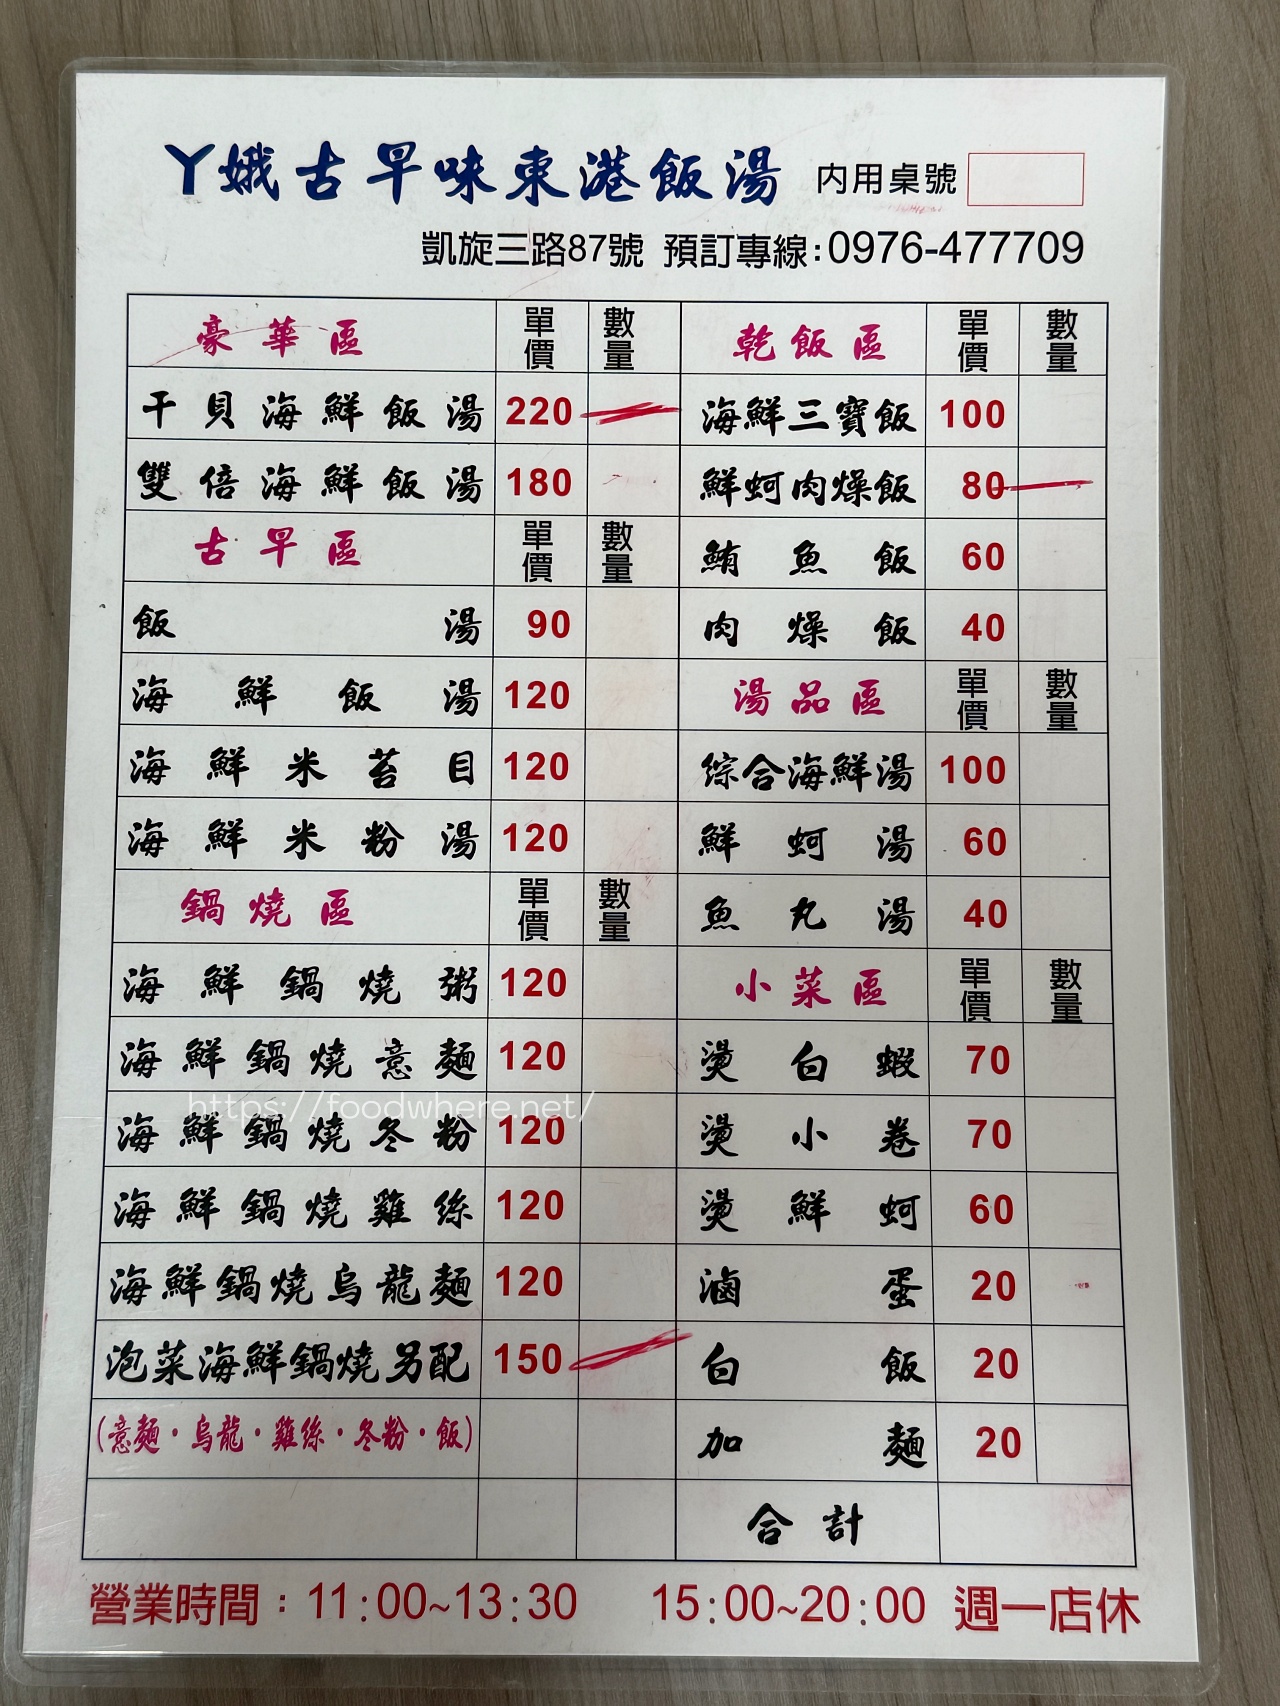 丫娥古早味東港飯湯 內用桌號
凱旋三路87號 預訂專線:0976-477709
豪華區 單價 數量
干貝海鮮飯湯 220
雙倍海鮮飯湯 180
古早區 單價 數量
飯湯 90
海鮮飯湯 120
海鮮米苔目 120
海鮮米粉湯 120
鍋燒區 單價 數量
海鮮鍋燒粥 120
海鮮鍋燒意麵 120
海鮮鍋燒冬粉 120
海鮮鍋燒雞絲 120
海鮮鍋燒烏龍麵 120
泡菜海鮮鍋燒另配 150
(意麵·烏龍·雞絲·冬粉·飯)
乾飯區 單價 數量
海鮮三寶飯 100
鮮蚵肉燥飯 80
鮪魚飯 60
肉燥飯 40
湯品區 單價 數量
綜合海鮮湯 100
鮮蚵湯 60
魚丸湯 40
小菜區 單價 數量
燙白蝦 70
燙小卷 70
燙鮮蚵 60
滷蛋 20
白飯 20
加麵 20
合計
營業時間:11:00~13:30 15:00~20:00 週一店休
https://foodwhere.net/